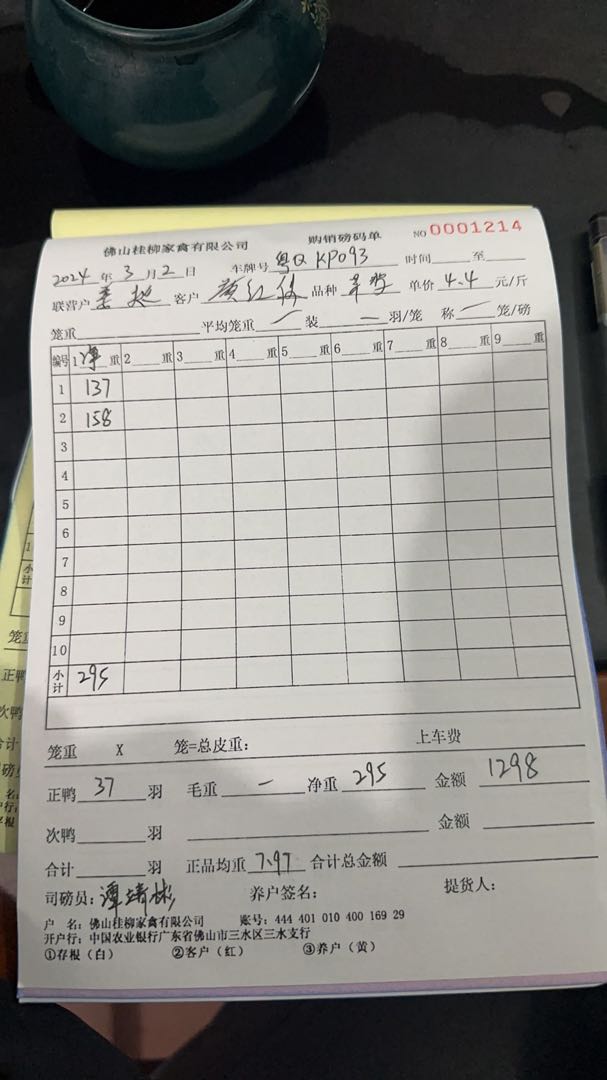 佛山桂柳家禽有限公司 购销磅码单 NO 0001214
2024 年 3 月 2 日 车牌号 粤Q KP093 时间 至
联营户 客户 颜红 品种 单价 4.4 元/斤
笼重 平均笼重 一 装 一 羽/笼 称 一 笼/磅
编号 1 净 重 2 重 3 重 4 重 5 重 6 重 7 重 8 重 9 重
1 137
2 158
3
4
5
6
7
8
9
10
小计 295
笼重 X 笼=总皮重: 上车费
正鸭 37 羽 毛重 一 净重 295 金额 1298
次鸭 羽 金额
合计 羽 正品均重 7.97 合计总金额
司磅员: 谭靖彬 养户签名: 提货人:
户 名: 佛山桂柳家禽有限公司 账号: 444 401 010 400 169 29
开户行: 中国农业银行广东省佛山市三水区三水支行
①存根（白） ②客户（红） ③养户（黄）